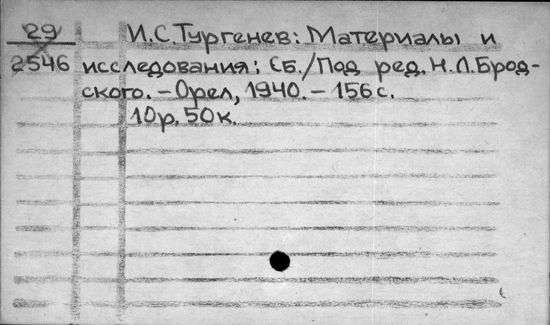 29 И.С.Тургенев: Материалы и
2546 исследования: Сб./Под ред. Н.Л.Брод-
ского. – Орел, 1940. – 156 с.
10р. 50к.